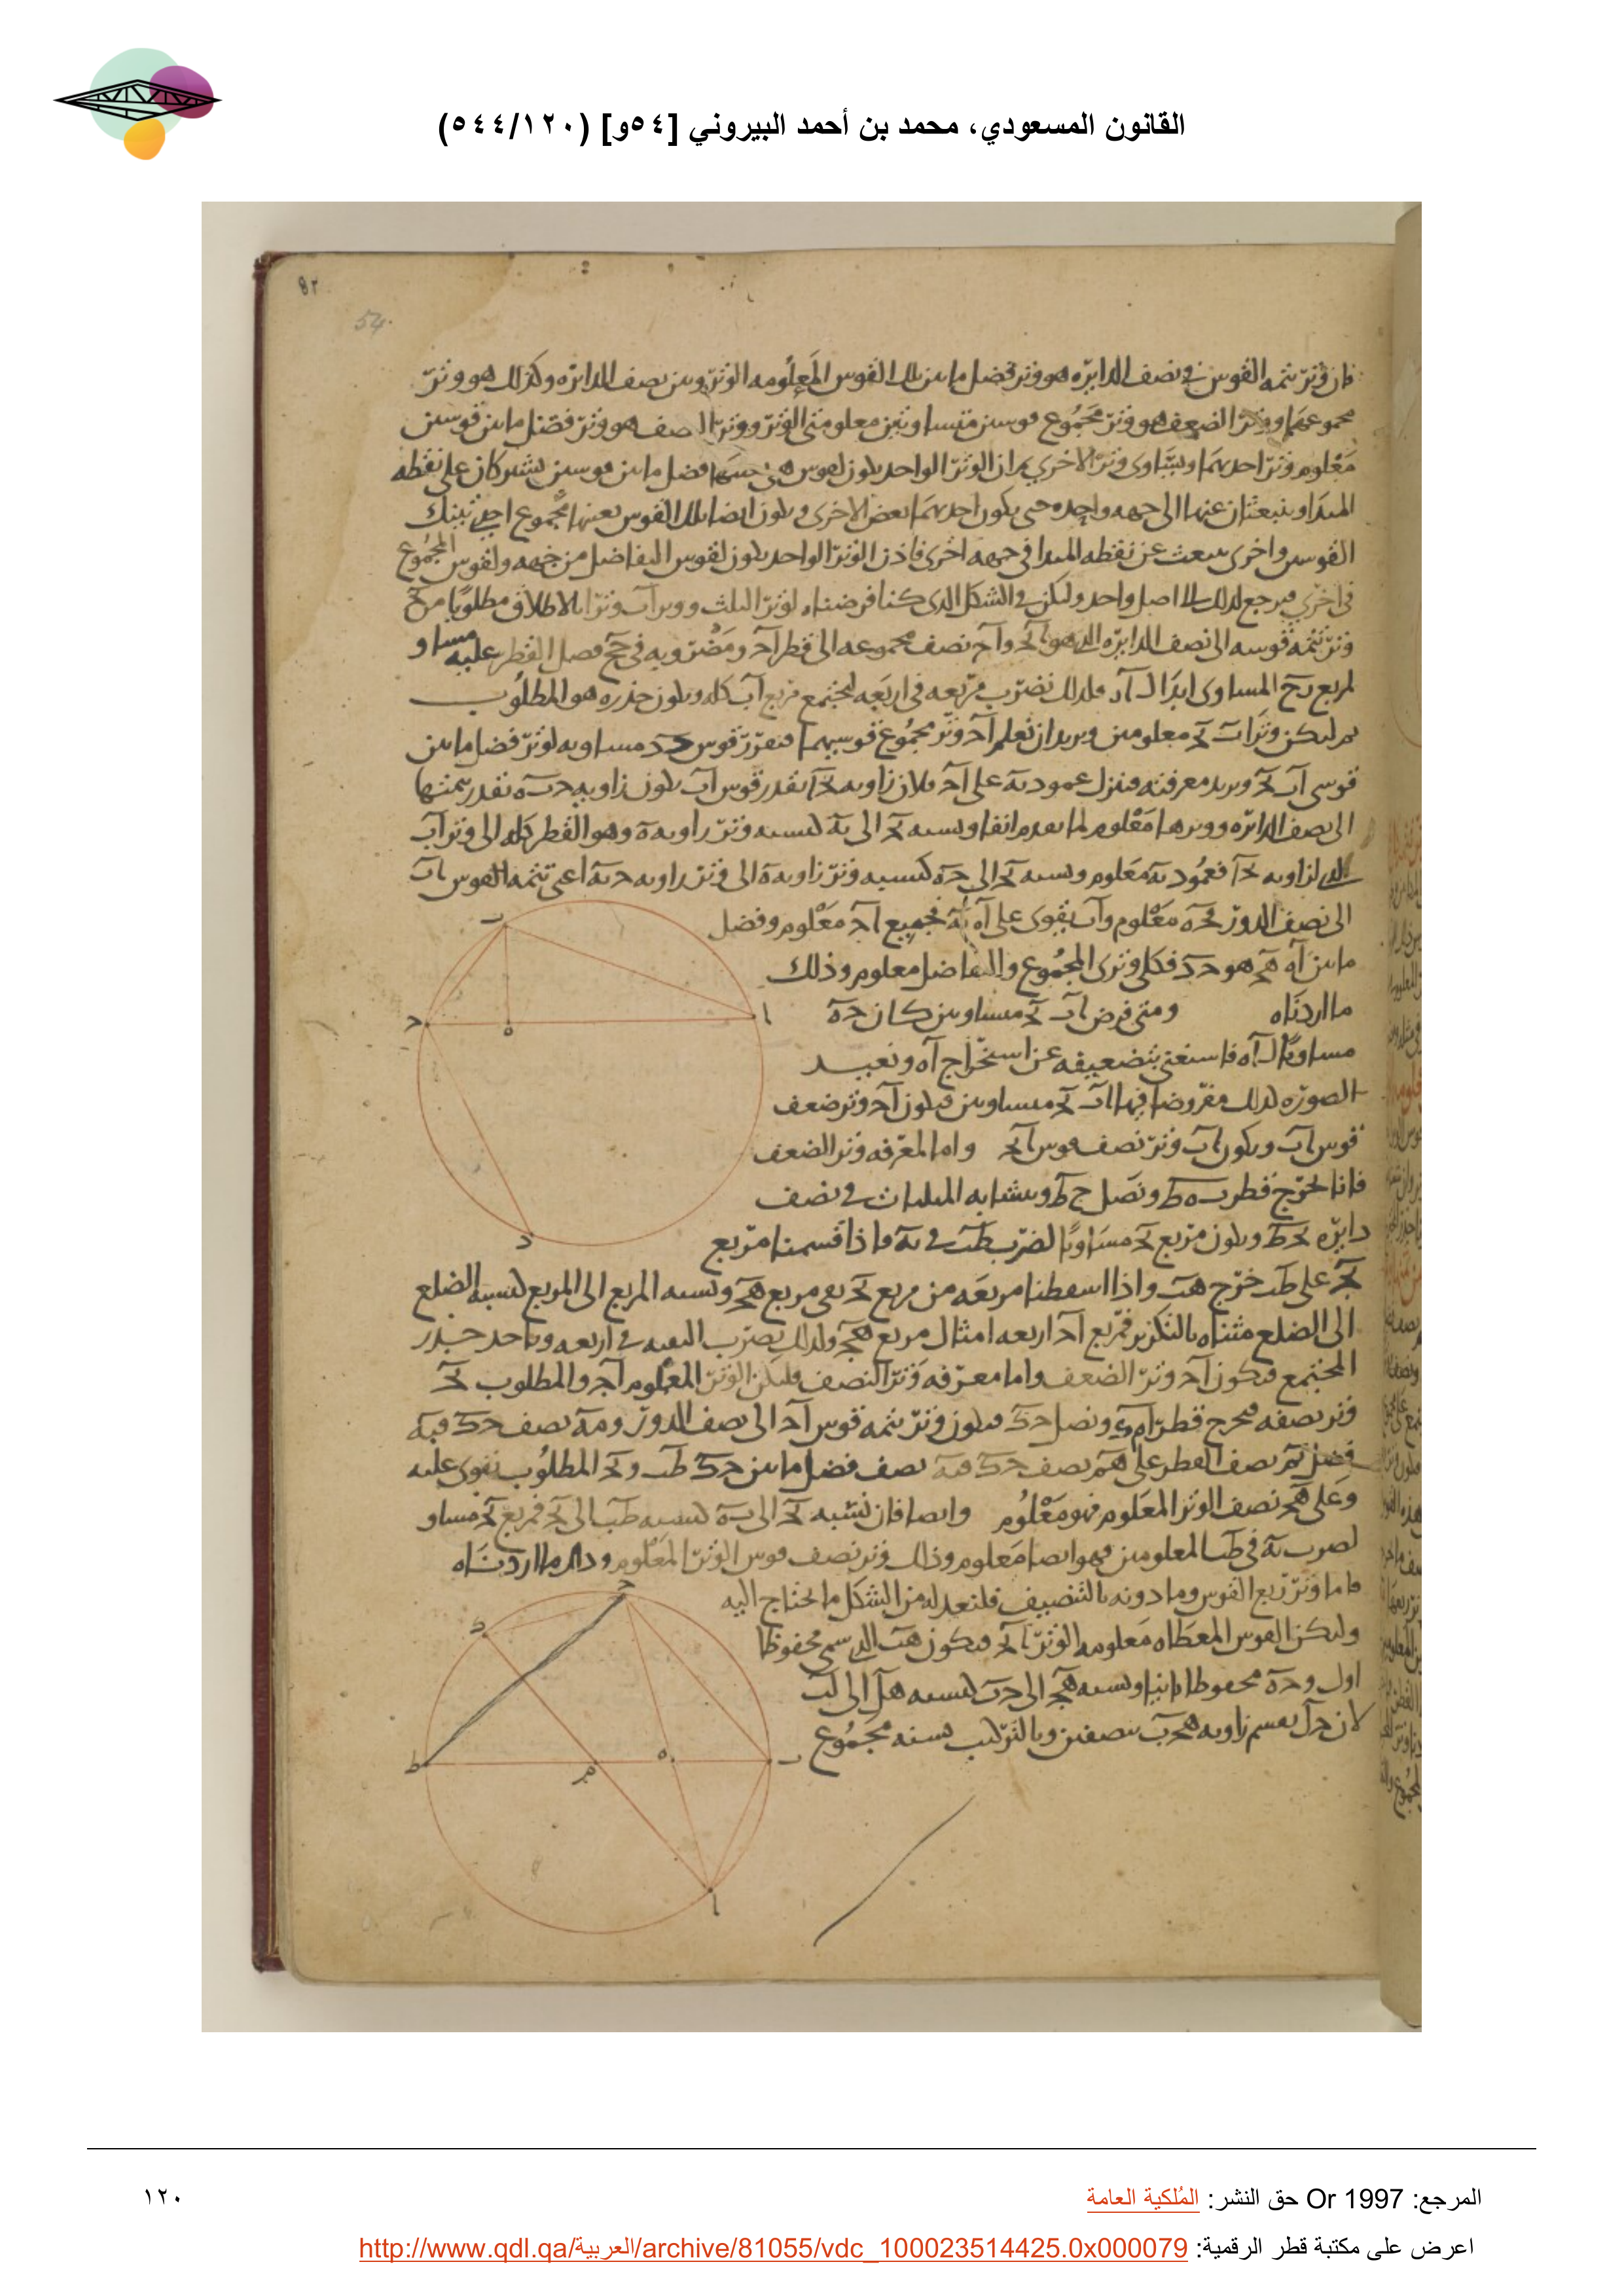 القانون المسعودي، محمد بن أحمد البيروني [٥٤و] (٥٤٤/١٢٠)
٨٢
54.
فان وتر تتمة القوس في نصف الدايره هو وتر فضل ما بين تلك القوس المعلومه الوتر وبين نصف الدايره وكذلك هو وتر
مجموعهما ووتر الضعف هو وتر مجموع قوسين متساويتين معلومتي الوتر ووتر النصف هو وتر فضل ما بين قوسين
معلوم وتر احديهما ويساوى وتر الاخرى ثم ان الوتر الواحد يكون لقوس هي فضل ما بين قوسين تشتركان على نقطه
المبدا وينبعثان عنها الى جهه واحده حتى يكون احديهما بعض الاخرى ويكون ايضا لتلك القوس بعينها مجموع احدى تينك
القوسين واخرى تنبعث عن نقطه المبدا في جهه اخرى فاذن الوتر الواحد يكون لقوس التفاضل من جهه ولقوس المجموع
في اخرى فيرجع لذلك الى اصل واحد وليكن في الشكل الذى كنا فرضناه لوتر الثلث ووتر اب وترا بالاطلاق مطلوبا من
وتر تتمه قوسه الى نصف الدايره الذى هو نصف مجموعه الى قطر ومضروبه في فضل القطر عليه مساو
لمربع المساوى ابدا فلذلك نضرب مربعه في اربعه ليجتمع مربع اب كله ويكون جذره هو المطلوب
ثم ليكن وترا اب بج معلومين ونريد ان نعلم اج وتر مجموع قوسيهما فنفرز قوس جد مساويه لوتر فضل ما بين
قوسى اب بج ونريد معرفته فننزل عمود به على اج فلان زاويه بجا بقدر قوس اب تكون زاويه جبه بقدر تتمتها
الى نصف الدايره ووترها معلوم لما تقدم انفا ونسبه بج الى به كنسبه وتر زاويه ه وهو القطر كله الى وتر اب
الذى لزاويه بجا فعمود به معلوم ونسبه بج الى جه كنسبه وتر زاويه ه الى وتر زاويه جبه اعنى تتمه القوس اب
الى نصف الدور فجه معلوم واب يقوى على اه به فجميع اج معلوم وفضل
ما بين اه هج هو جد فكل وترى المجموع والتفاضل معلوم وذلك
ما اردناه ومتى فرض اب بج متساويين كان جه
مساويا لـ اه فاستغنى بتضعيفه عن استخراج اه ونعيد
الصوره لذلك مفروضا فيها اب بج متساويين فيكون اج وتر ضعف
قوس اب ويكون اب وتر نصف قوس ابج واما لمعرفه وتر الضعف
فانا نخرج قطر ب ه ط ونصل ج ط وبتشابه المثلثات في نصف
دايره بجط ويكون مربع بج مساويا لضرب طب في به فاذا قسمنا مربع
بج على طب خرج هب واذا اسقطنا مربعه من مربع بج بقى مربع هج ونسبه المربع الى المربع كنسبه الضلع
الى الضلع مثناه بالتكرير فمربع اج اربعه امثال مربع هج ولذلك نضرب البقيه في اربعه وناخذ جذر
المجتمع فيكون اج وتر الضعف واما معرفه وتر النصف فليكن الوتر المعلوم اج والمطلوب بج
وتر نصفه فنخرج قطر امد ونصل جد فيكون وتر تتمه قوس اج الى نصف الدور ومه نصف جد فبه
فضل بم نصف القطر على هم نصف جد فبه نصف فضل ما بين جد طب وبج المطلوب يقوى عليه
وعلى هج نصف الوتر المعلوم فهو معلوم وايضا فان نسبه بج الى به كنسبه طب الى بج فمربع بج مساو
لضرب به في طب المعلومين فهو ايضا معلوم وذلك وتر نصف قوس الوتر المعلوم وذلك ما اردناه
فاما وتر ربع القوس وما دونه بالتنصيف فلنعد له من الشكل ما يحتاج اليه
وليكن القوس المعطاه معلومه الوتر ابج فيكون هب الذى سمى محفوظا
اول وجه محفوظا ثانيا ونسبه هج الى جب كنسبه هل الى لب
لان جل يقسم زاويه هجب بنصفين وبالتركيب نسبه مجموع
المرجع: Or 1997 حق النشر: المُلكية العامة
١٢٠
اعرض على مكتبة قطر الرقمية: http://www.qdl.qa/العربية/archive/81055/vdc_100023514425.0x000079